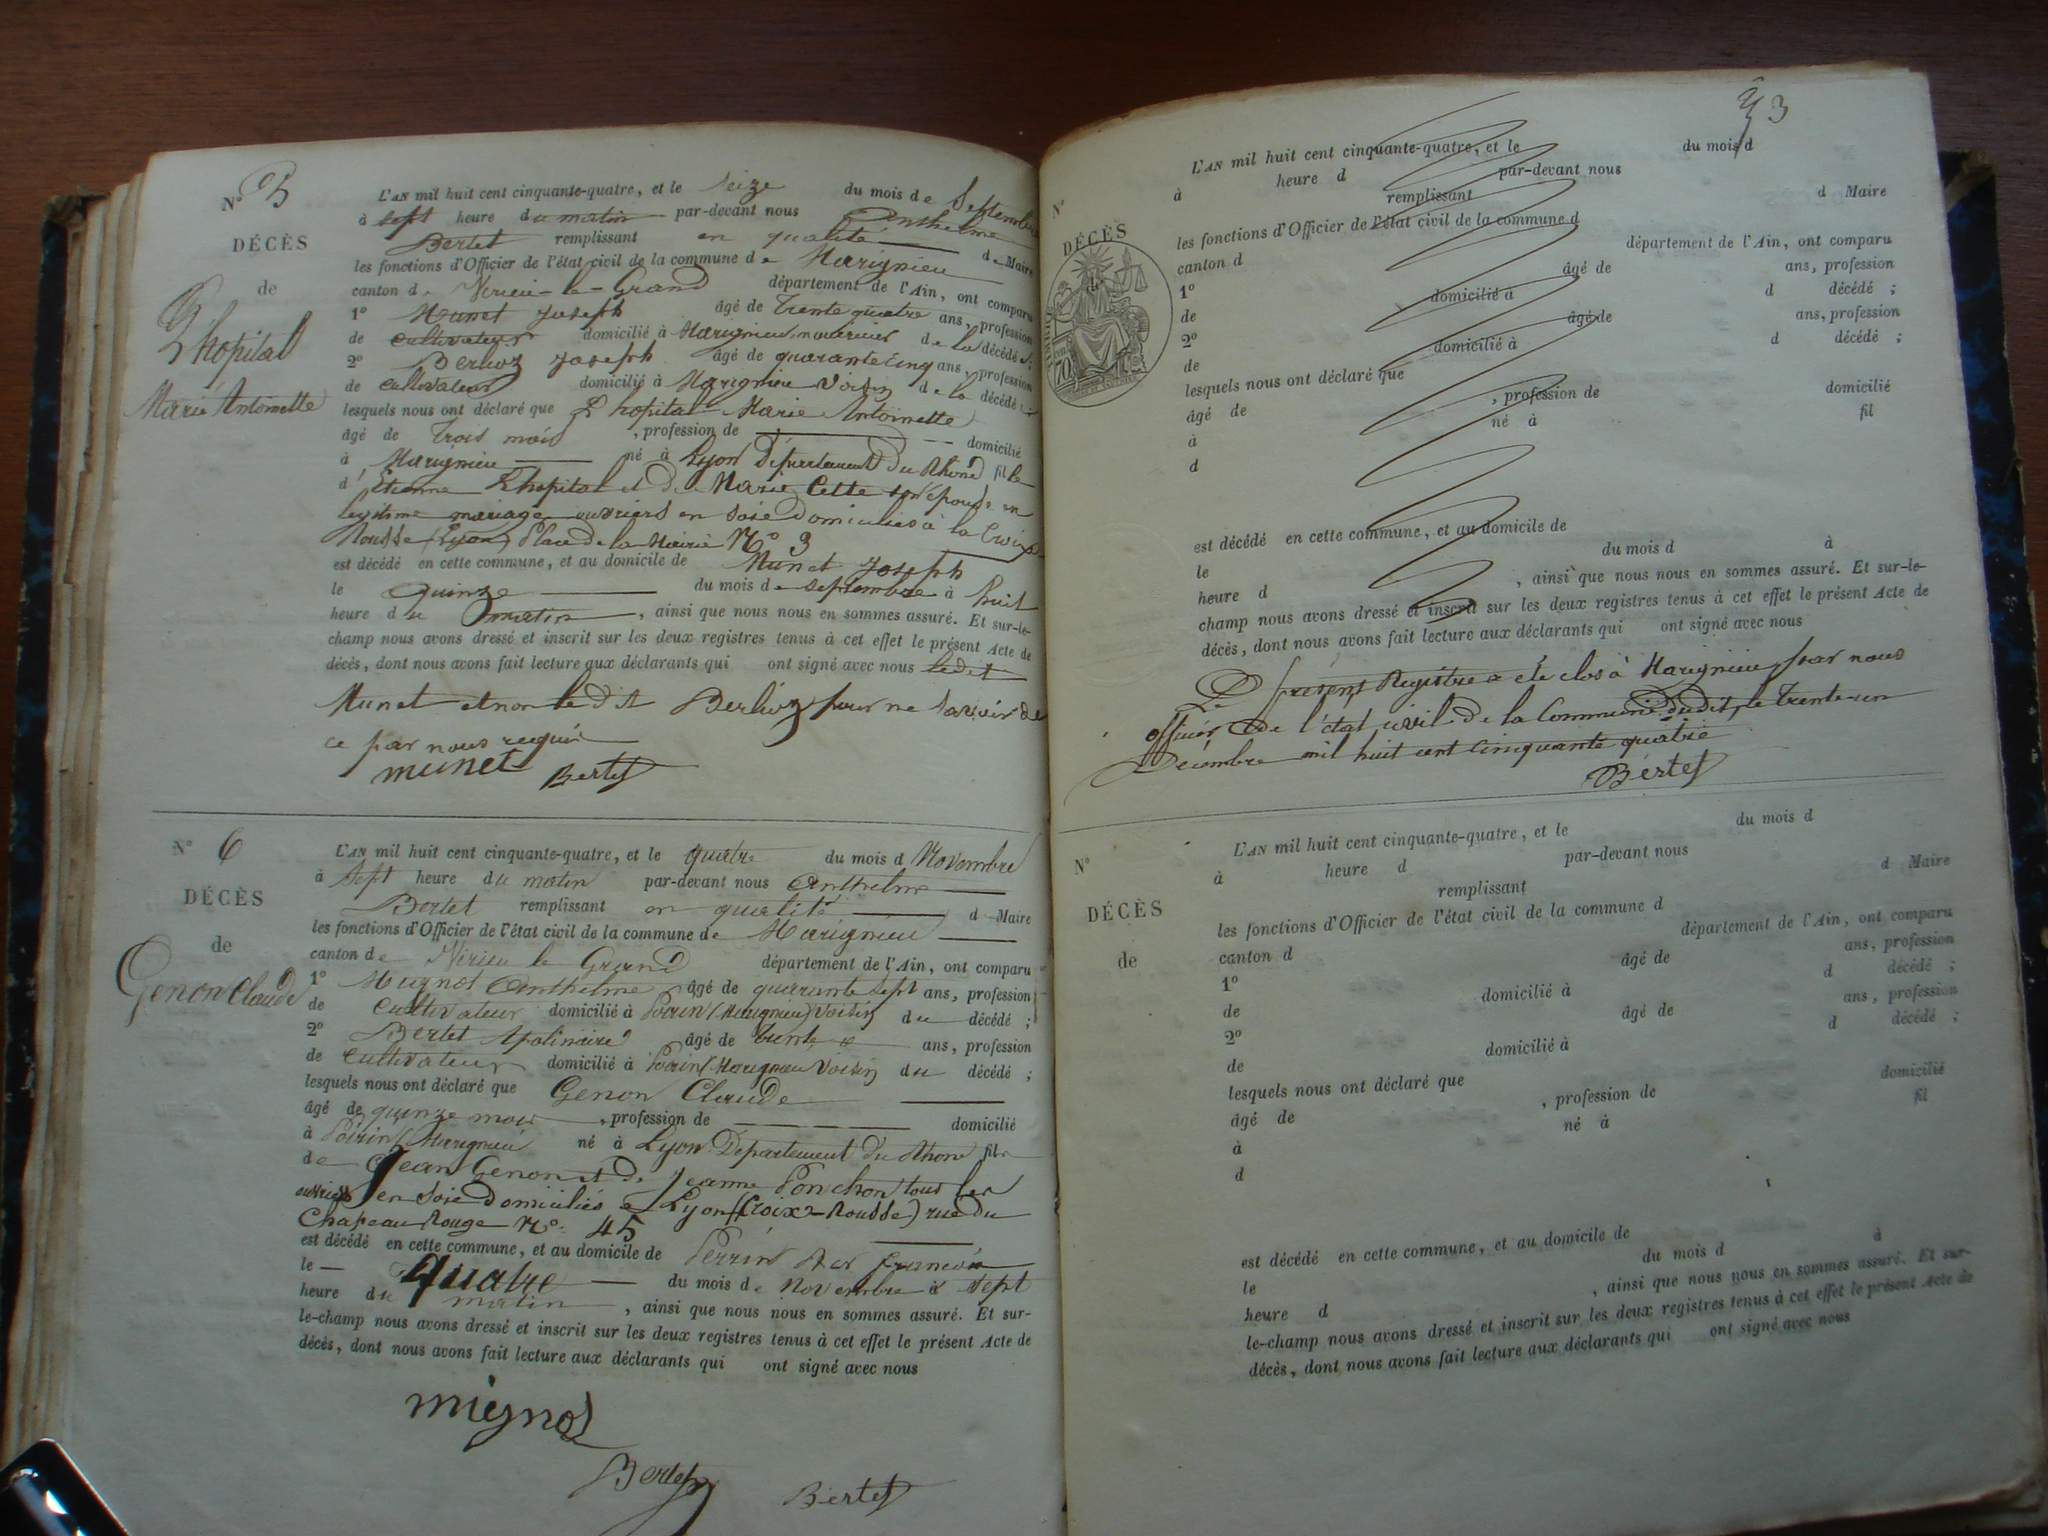 N° 5
DÉCÈS
de
Lhopital
Marie Antoinette
L'AN mil huit cent cinquante-quatre, et le Seize du mois de Septembre
à sept heure du matin par-devant nous Anthelme
Bertet remplissant en qualité de Maire
les fonctions d'Officier de l'état civil de la commune de Marignieu
canton de Virieu-le-Grand département de l'Ain, ont comparu
1° Munet Joseph âgé de Trente quatre ans, profession
de cultivateur domicilié à Marignieu nourricier de la décédée ;
2° Berlioz Joseph âgé de quarante cinq ans, profession
de cultivateur domicilié à Marignieu Voisin de la décédée ;
lesquels nous ont déclaré que Lhopital Marie Antoinette
âgé de Trois mois , profession de domicilié
à Marignieu né à Lyon Département du Rhône fille
d'Etienne Lhopital et de Marie Cette son épouse en
légitime mariage ouvriers en soie domiciliés à la Croix
Rousse (Lyon) Place de la Mairie N° 3
est décédé en cette commune, et au domicile de Munet Joseph
le Quinze du mois de septembre à huit
heure du matin , ainsi que nous nous en sommes assuré. Et sur-le-
champ nous avons dressé et inscrit sur les deux registres tenus à cet effet le présent Acte de
décès, dont nous avons fait lecture aux déclarants qui ont signé avec nous ledit
Munet et non le dit Berlioz pour ne savoir de
ce par nous requis
munet Bertet
N° 6
DÉCÈS
de
Genon Claude
L'AN mil huit cent cinquante-quatre, et le quatre du mois d Novembre
à sept heure du matin par-devant nous Anthelme
Bertet remplissant en qualité d Maire
les fonctions d'Officier de l'état civil de la commune de Marignieu
canton de Virieu le Grand département de l'Ain, ont comparu
1° Mugnot Anthelme âgé de quarante sept ans, profession
de cultivateur domicilié à Poirin (Marignieu) Voisin du décédé ;
2° Bertet Apolinaire âgé de trente ans, profession
de cultivateur domicilié à Poirin (Marignieu Voisin du décédé ;
lesquels nous ont déclaré que Genon Claude
âgé de quinze mois , profession de domicilié
à Poirin (Marignieu né à Lyon Département du Rhône fils
de Jean Genon et de Jeanne Ponchon tous les
ouvriers en Soie domiciliés à Lyon (Croix-Rousse) rue du
Chapeau Rouge N° 45
est décédé en cette commune, et au domicile de Perrin françois
le quatre du mois de Novembre à sept
heure du matin , ainsi que nous nous en sommes assuré. Et sur-
le-champ nous avons dressé et inscrit sur les deux registres tenus à cet effet le présent Acte de
décès, dont nous avons fait lecture aux déclarants qui ont signé avec nous
mignot
Bertet Bertet
3
N°
DÉCÈS
L'AN mil huit cent cinquante-quatre, et le du mois d
à heure d par-devant nous
remplissant d Maire
les fonctions d'Officier de l'état civil de la commune d
canton d département de l'Ain, ont comparu
1° âgé de ans, profession
de domicilié à d décédé ;
2° âgé de ans, profession
de domicilié à d décédé ;
lesquels nous ont déclaré que
âgé de , profession de domicilié
à né à fil
d
est décédé en cette commune, et au domicile de
le du mois d à
heure d , ainsi que nous nous en sommes assuré. Et sur-le-
champ nous avons dressé et inscrit sur les deux registres tenus à cet effet le présent Acte de
décès, dont nous avons fait lecture aux déclarants qui ont signé avec nous
Le présent Registre a été clos à Marignieu par nous
officier de l'état civil de la Commune dudit, le Trente-un
Décembre mil huit cent cinquante quatre
Bertet
N°
DÉCÈS
de
L'AN mil huit cent cinquante-quatre, et le du mois d
à heure d par-devant nous
remplissant d Maire
les fonctions d'Officier de l'état civil de la commune d
canton d département de l'Ain, ont comparu
1° âgé de ans, profession
de domicilié à d décédé ;
2° âgé de ans, profession
de domicilié à d décédé ;
lesquels nous ont déclaré que
âgé de , profession de domicilié
à né à fil
d
est décédé en cette commune, et au domicile de
le du mois d à
heure d , ainsi que nous nous en sommes assuré. Et sur-
le-champ nous avons dressé et inscrit sur les deux registres tenus à cet effet le présent Acte de
décès, dont nous avons fait lecture aux déclarants qui ont signé avec nous